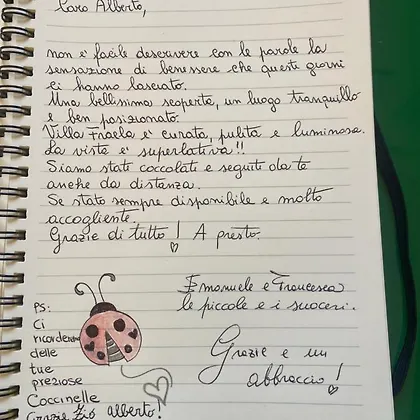 Caro Alberto,
non è facile descrivere con le parole la
sensazione di benessere che questi giorni
ci hanno lasciato.
Una bellissima scoperta, un luogo tranquillo
e ben posizionato.
Villa Fraela è curata, pulita e luminosa.
La vista è superlativa!!
Siamo stati coccolati e seguiti da te
anche da distanza.
Se stato sempre disponibile e molto
accogliente.
Grazie di tutto! A presto.
Emanuele e Francesca
le piccole e i suoceri.
Grazie e un
abbraccio!
PS:
Ci
ricorderemo
delle
tue
preziose
Coccinelle
Grazie zio Alberto!